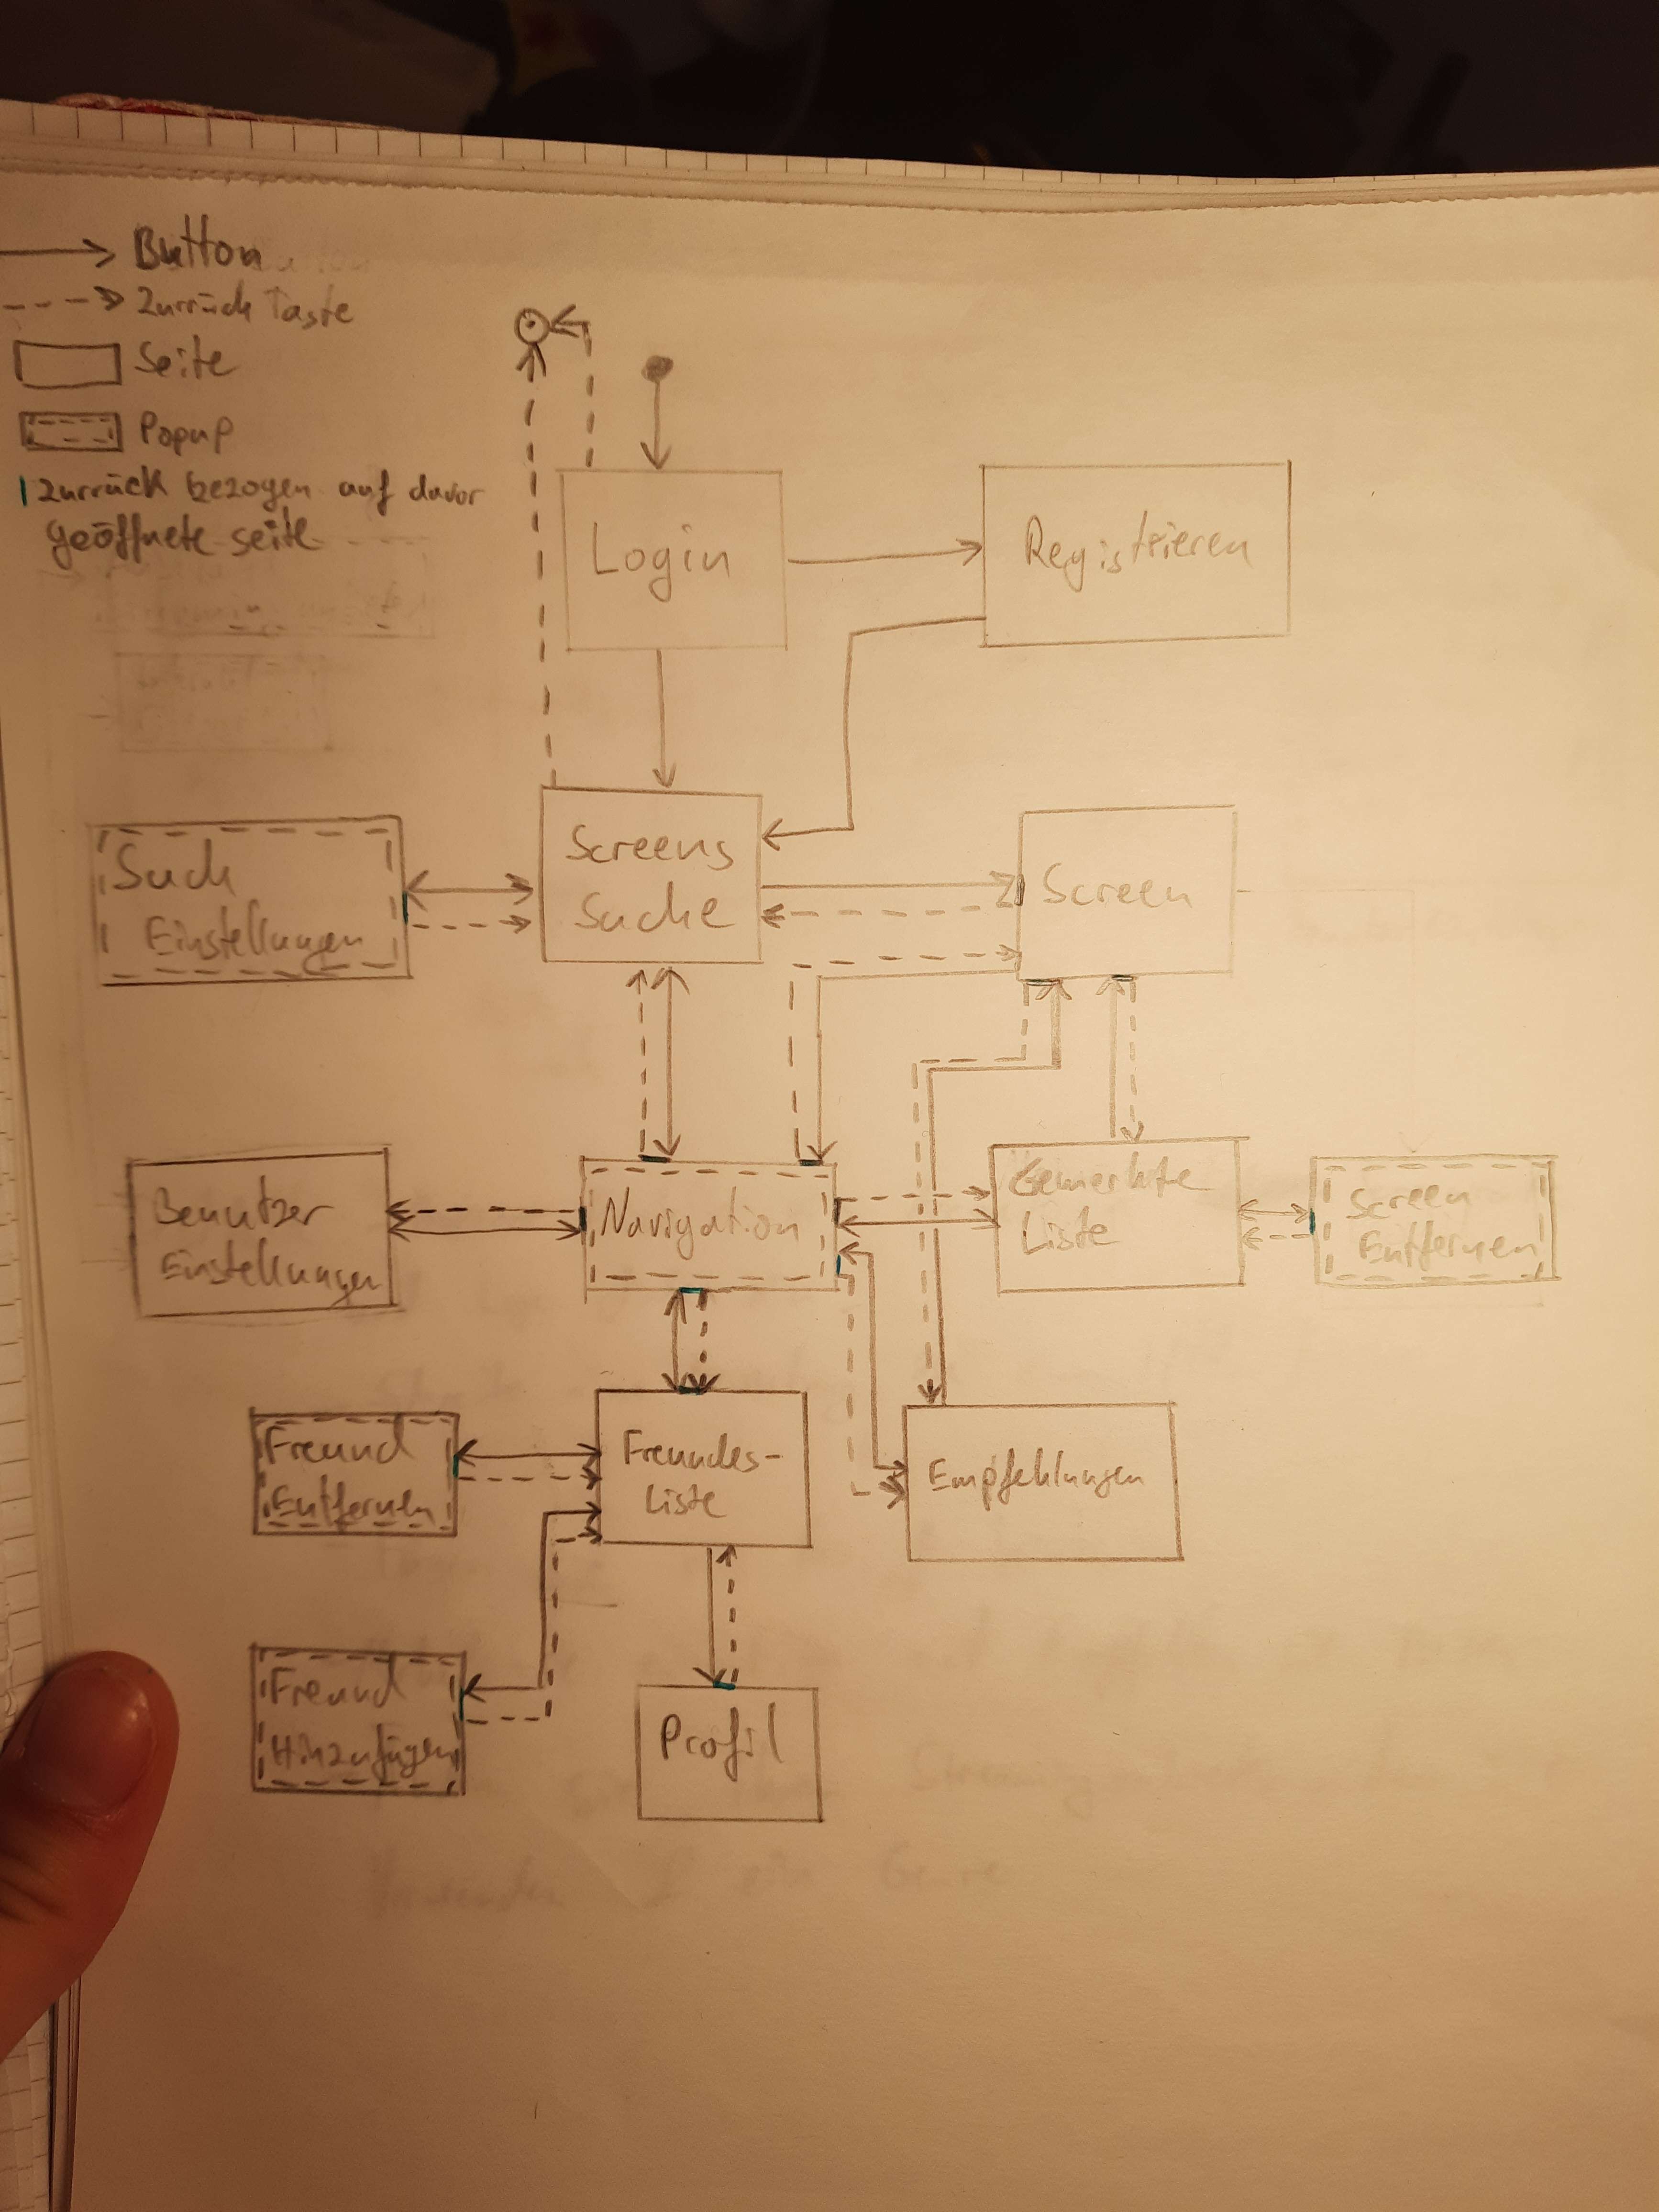 Button
Zurrück Taste
Seite
Popup
Zurrück bezogen auf davor
geöffnete seite
Login
Registrieren
Screens
Suche
Screen
Such
Einstellungen
Benutzer
Einstellungen
Navigation
Gemerkte
Liste
Screen
Entfernen
Freund
Entfernen
Freundes-
Liste
Empfehlungen
Freund
Hinzufügen
Profil